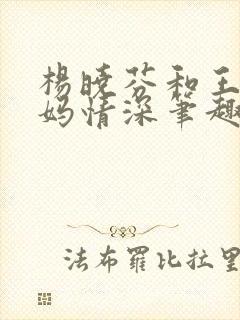 楊曉芬和王
妈情深筆趣
法布羅比拉里